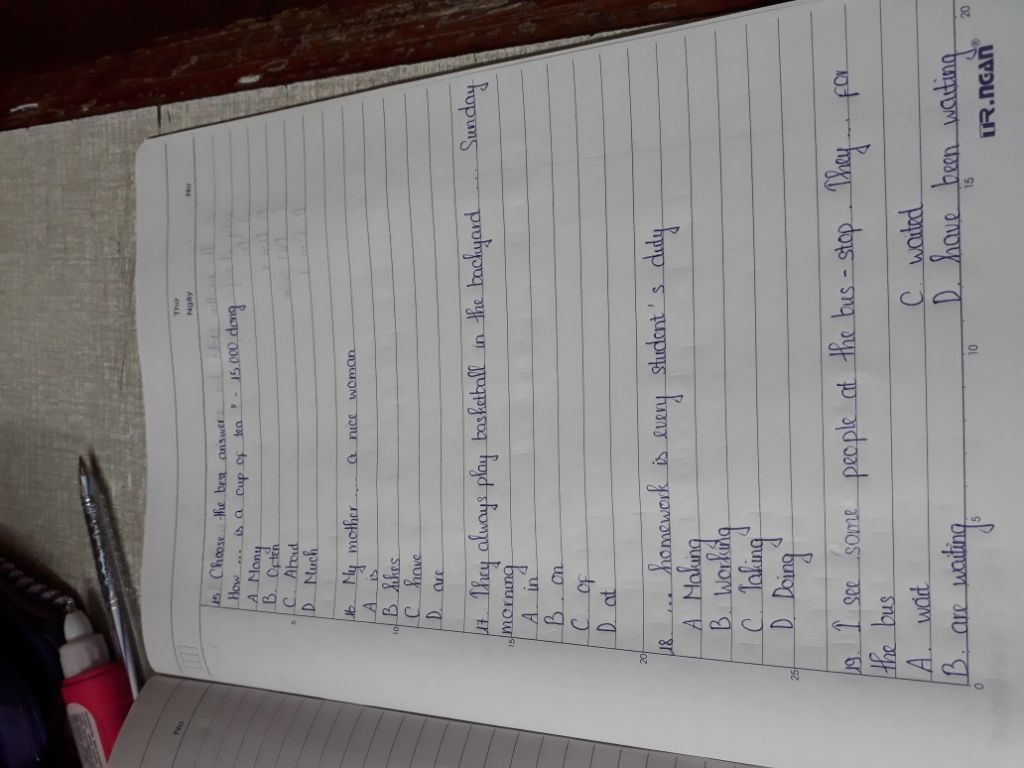 Thứ
Ngày
No
15. Choose the best answer
How .... is a cup of tea? - 15.000 dong
A. Many
B. Often
C. About
D. Much
16. My mother .... a nice woman
A is
B likes
C. have
D. are
17. They always play basketball in the backyard .... Sunday
morning
A. in
B. on
C. of
D. at
18. .... homework is every student's duty
A Making
B. Working
C. Taking
D. Doing
19. I see some people at the bus-stop. They.... for
the bus
A. wait C. waited
B. are waiting D. have been waiting
5
10
15
20
25
0 5 10 15 20
TR.NGAN®
No